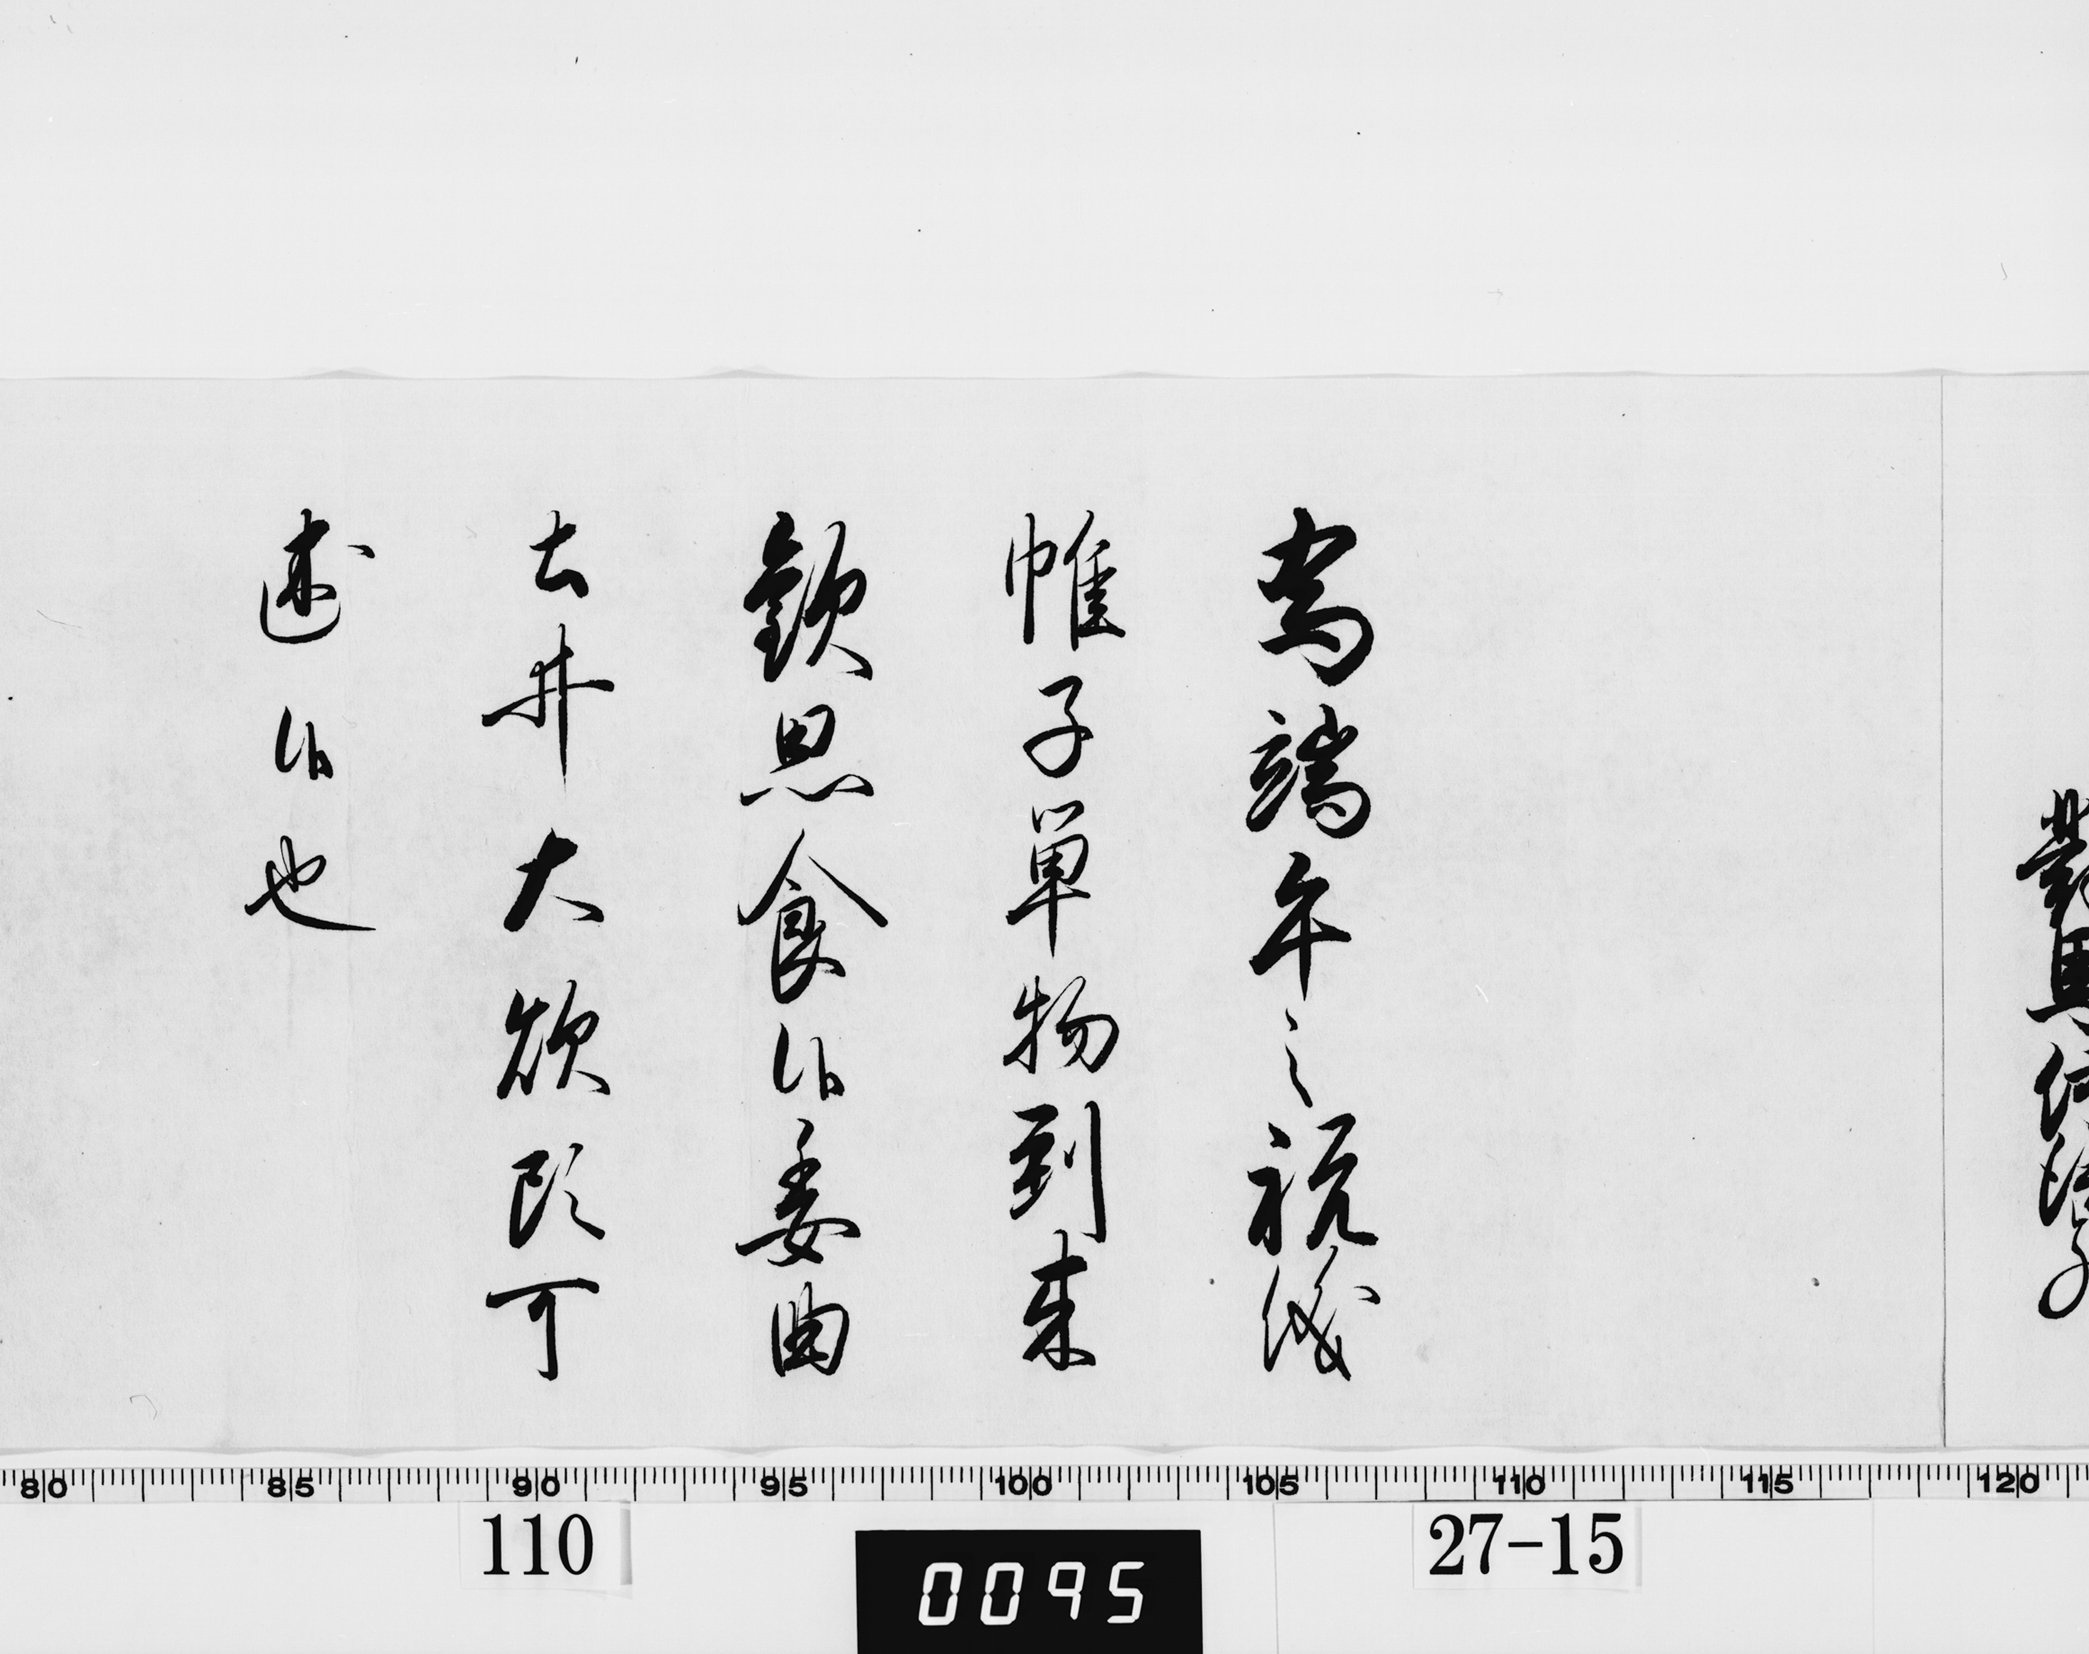 為端午之祝儀
帷子單物到来
歓思食候委曲
土井大炊頭可
述候也
80 85 90 95 100 105 110 115 120
110
0095
27-15